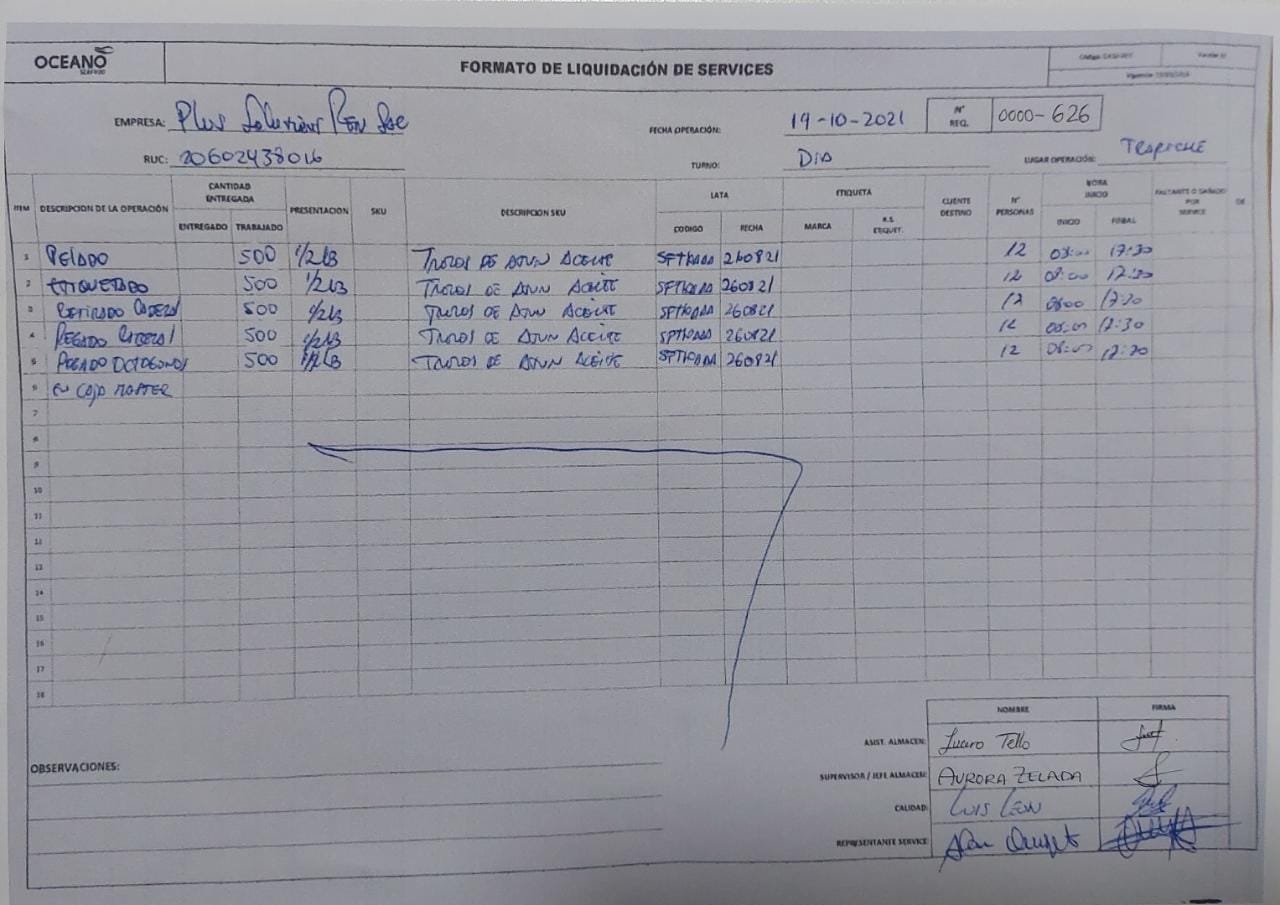 OCEANO
SEAFOOD
FORMATO DE LIQUIDACIÓN DE SERVICES
EMPRESA: Plus Solutions Ren Sac
FECHA OPERACIÓN: 19-10-2021
N° REQ. 0000-626
RUC: 20602438016
TURNO: DIA
LUGAR OPERACIÓN: TRAPICHE
ITEM DESCRIPCION DE LA OPERACIÓN CANTIDAD ENTREGADA PRESENTACION SKU DESCRIPCION SKU LATA ETIQUETA CLIENTE DESTINO N° PERSONAS HORA INICIO FALTANTE O DAÑADO POR SERVICE DE
ENTREGADO TRABAJADO CODIGO FECHA MARCA R.S. ETIQUET. INICIO FINAL
1 PELADO 500 1/2 LB TROZOS DE ATUN ACEITE 260821 12 08:00 17:30
2 ETIQUETADO 500 1/2 LB TROZOS DE ATUN ACEITE 260821 12 08:00 17:30
3 RETIRADO 500 1/2 LB TROZOS DE ATUN ACEITE 260821 12 08:00 17:30
4 PEGADO 500 1/2 LB TROZOS DE ATUN ACEITE 260821 12 08:00 17:30
5 PEGADO OCTOGONOS 500 1/2 LB TROZOS DE ATUN ACEITE 260821 12 08:00 17:30
6 EN CAJA MASTER
7
8
9
10
11
12
13
14
15
16
17
18
NOMBRE FIRMA
ASIST. ALMACEN: Tello
OBSERVACIONES:
SUPERVISOR / JEFE ALMACEN: AURORA ZELADA
CALIDAD: LUIS LEON
REPRESENTANTE SERVICE